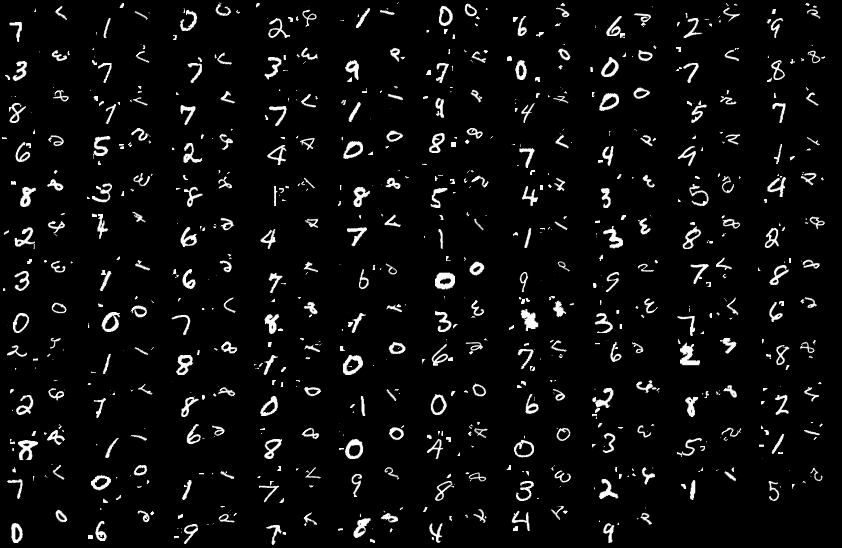 7 1 0 2 1 0 6 6 2 9
3 7 7 3 9 7 0 0 7 8
8 7 7 7 1 9 4 0 5 7
6 5 2 4 0 8 7 9 9 1
8 3 8 1 8 5 4 3 5 4
2 4 6 4 7 1 1 3 8 2
3 1 6 7 6 0 9 9 7 8
0 0 7 8 1 3 3 7 6
2 1 8 1 0 6 7 6 2 8
2 7 8 0 1 0 6 2 8 2
8 1 6 8 0 4 0 3 5 1
7 0 1 7 9 8 3 2 1 5
0 6 9 7 8 4 4 9